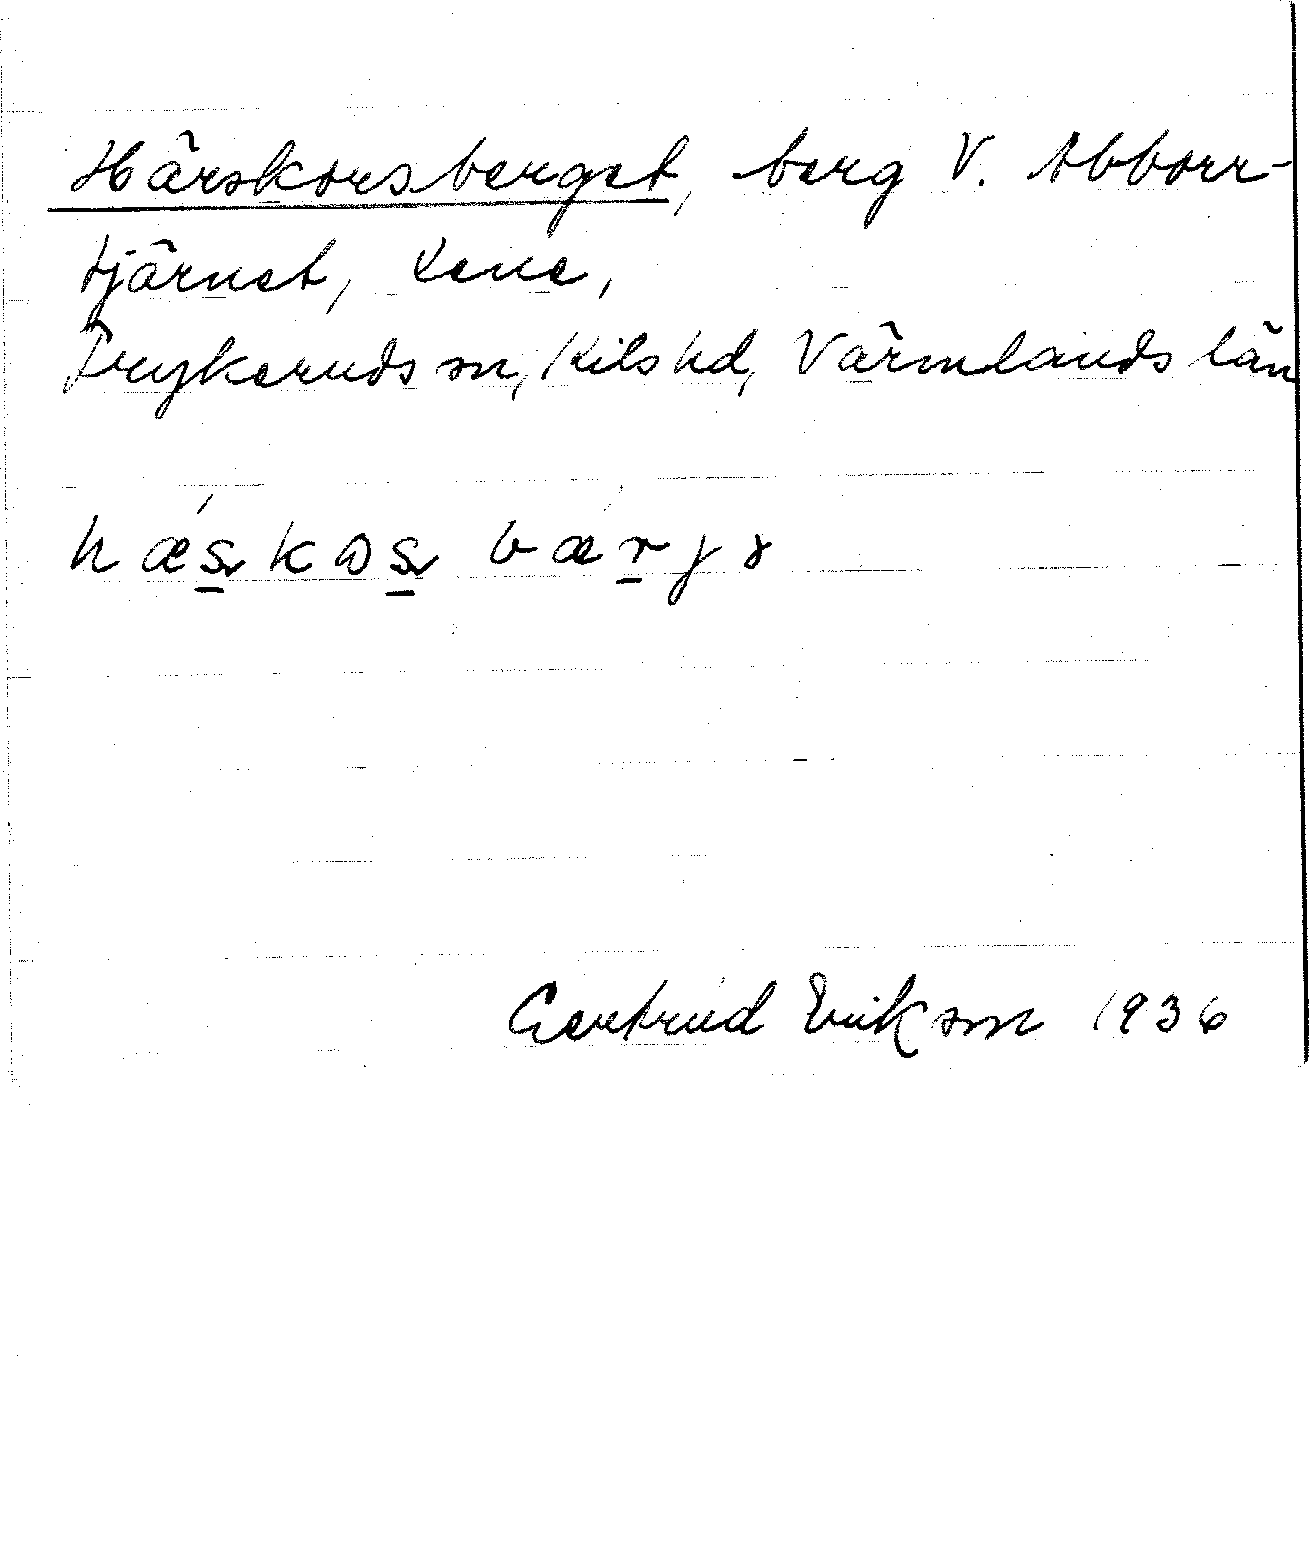 Härskorsberget, berg V. Abborr-
tjärnet, Lene,
Frykeruds sn, Kils hd, Värmlands län
hæ´skɷs bærjɤ
Gertrud Erikson 1936